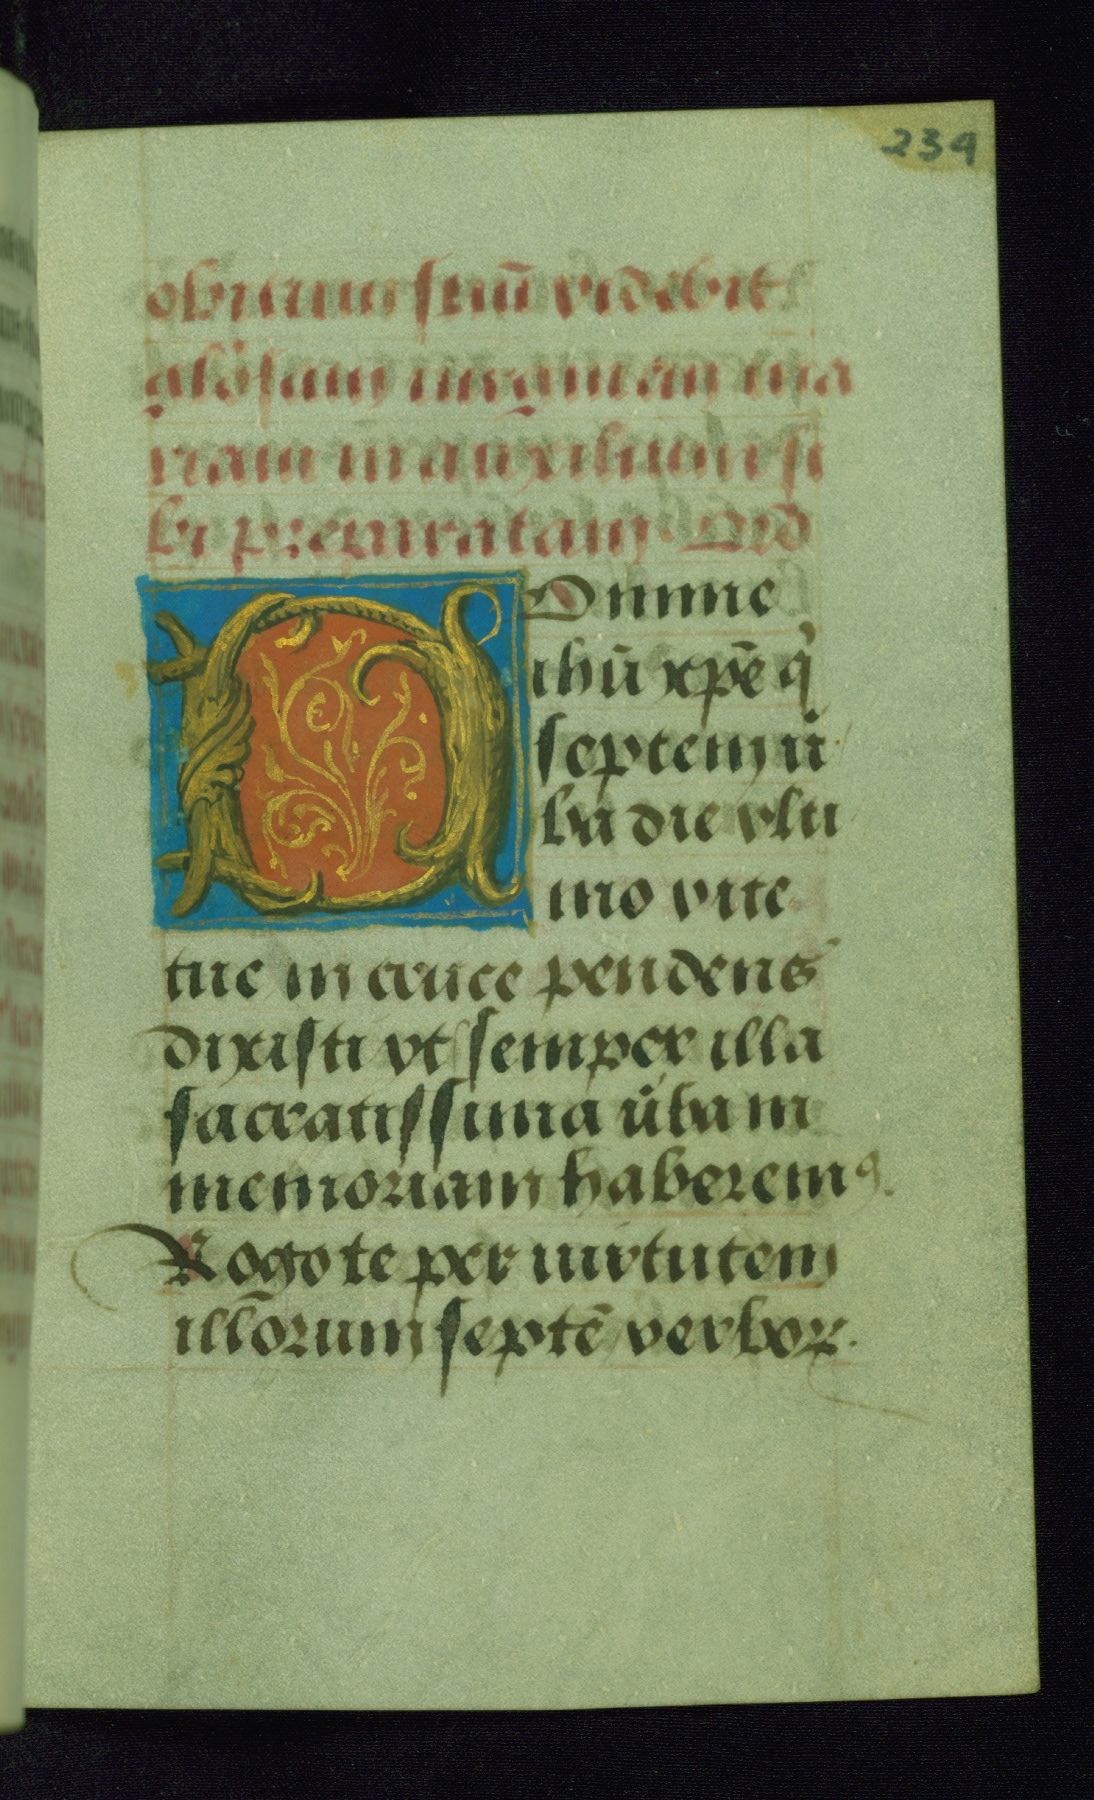 234
obitum suū videbit
glōsam virginem ma
riam in auxilium si
bi preparatam
Domine
ihū xp̄e q̇
septem ū
ba die ulti
mo vite
tue in cruce pendens
dixisti vt semper illa
sacratissima ūba in
memoriam haberemꝰ.
Rogo te per uirtutem
illōrum septē verboꝝ.